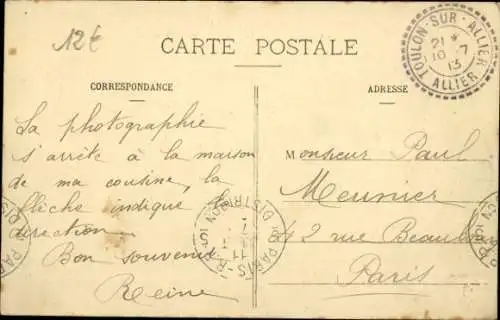 12€
CARTE POSTALE
TOULON-SUR-ALLIER
21 *
10 - 7
13
ALLIER
CORRESPONDANCE
ADRESSE
La photographie
s'arrête à la maison
de ma cousine, la
flèche indique la
direction
Bon souvenir
Reine
Monsieur Paul
Meunier
42 rue Beaubourg
Paris
PARIS
DISTRIBUTION